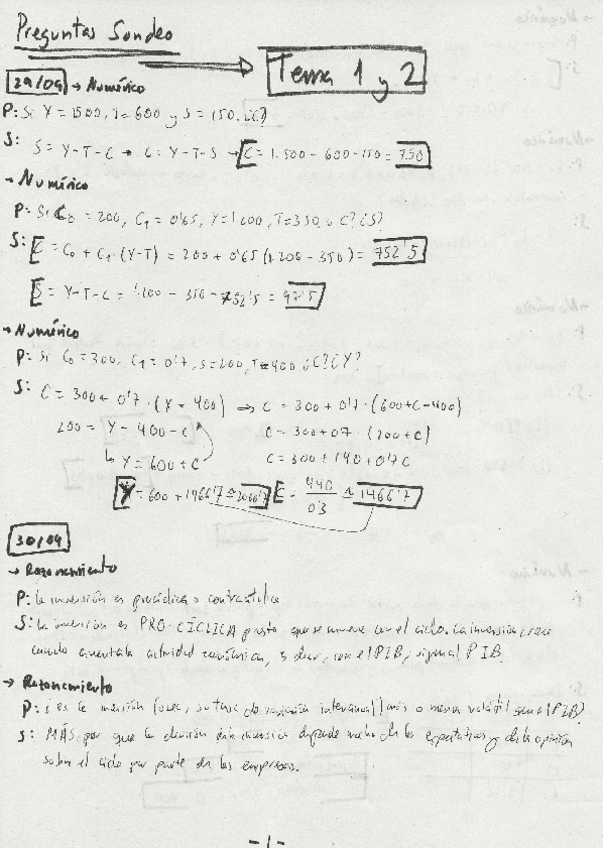 Preguntas Sondeo
Tema 1 y 2
29/09 → Numérico
P: Si Y = 1500, T = 600 y S = 150, ¿C?
S: S = Y - T - C → C = Y - T - S → C = 1.500 - 600 - 150 = 750
→ Numérico
P: Si C₀ = 200, C₁ = 0'65, Y = 1.200, T = 350 ¿C? ¿S?
S: C = C₀ + C₁ · (Y-T) = 200 + 0'65 (1.200 - 350) = 752'5
S = Y-T-C = 1.200 - 350 - 752'5 = 97'5
→ Numérico
P: Si C₀ = 300, C₁ = 0'7, S = 200, T = 400 ¿C? ¿Y?
S: C = 300 + 0'7 · (Y - 400) ⇒ C = 300 + 0'7 · (600 + C - 400)
200 = Y - 400 - C C = 300 + 07 · (200 + C)
↳ Y = 600 + C C = 300 + 140 + 0'7C
Y = 600 + 1466'7 ≃ 2066'7 C = 440/03 ≃ 1466'7
30/09
→ Razonamiento
P: la inversión es procíclica o contracíclica
S: la inversión es PRO-CÍCLICA puesto que se mueve con el ciclo. La inversión crece
cuando aumenta la actividad económica, es decir, con el PIB, sigue al PIB.
→ Razonamiento
P: ¿es la inversión (sea, su tasa de variación interanual) más o menos volátil que el PIB?
S: MÁS, por que la decisión de la inversión depende mucho de las expectativas y de la opinión
sobre el ciclo por parte de las empresas.
-1-